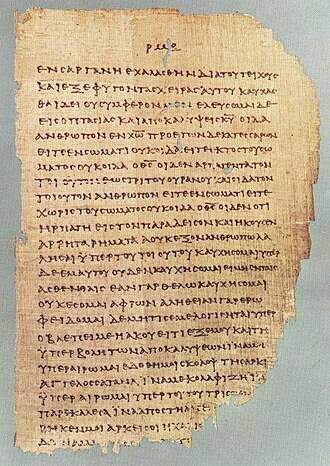 ΡΜΕ
ΕΝ ΣΑΡΓΑΝΗ ΕΧΑΛΑΣΘΗΝ ΔΙΑ ΤΟΥ ΤΕΙΧΟΥΣ
ΚΑΙ ΕΞΕΦΥΓΟΝ ΤΑΣ ΧΕΙΡΑΣ ΑΥΤΟΥ ΚΑΥΧΑΣ
ΘΑΙ ΔΕΙ ΟΥ ΣΥΜΦΕΡΟΝ ΜΕΝ ΕΛΕΥΣΟΜΑΙ ΔΕ
ΕΙΣ ΟΠΤΑΣΙΑΣ ΚΑΙ ΑΠΟΚΑΛΥΨΕΙΣ ΚΥ ΟΙΔΑ
ΑΝΘΡΩΠΟΝ ΕΝ ΧΩ ΠΡΟ ΕΤΩΝ ΔΕΚΑΤΕΣΣΑΡΩΝ
ΕΙΤΕ ΕΝ ΣΩΜΑΤΙ ΟΥΚ ΟΙΔΑ ΕΙΤΕ ΕΚΤΟΣ ΤΟΥ ΣΩ
ΜΑΤΟΣ ΟΥΚ ΟΙΔΑ Ο ΘΣ ΟΙΔΕΝ ΑΡΠΑΓΕΝΤΑ ΤΟΝ
ΤΟΙΟΥΤΟΝ ΕΩΣ ΤΡΙΤΟΥ ΟΥΡΑΝΟΥ ΚΑΙ ΟΙΔΑ ΤΟΝ
ΤΟΙΟΥΤΟΝ ΑΝΘΡΩΠΟΝ ΕΙΤΕ ΕΝ ΣΩΜΑΤΙ ΕΙΤΕ
ΧΩΡΙΣ ΤΟΥ ΣΩΜΑΤΟΣ ΟΥΚ ΟΙΔΑ Ο ΘΣ ΟΙΔΕΝ ΟΤΙ
ΗΡΠΑΓΗ ΕΙΣ ΤΟΝ ΠΑΡΑΔΕΙΣΟΝ ΚΑΙ ΗΚΟΥΣΕΝ
ΑΡΡΗΤΑ ΡΗΜΑΤΑ Α ΟΥΚ ΕΞΟΝ ΑΝΘΡΩΠΩ ΛΑ
ΛΗΣΑΙ ΥΠΕΡ ΤΟΥ ΤΟΙΟΥΤΟΥ ΚΑΥΧΗΣΟΜΑΙ ΥΠΕΡ
ΔΕ ΕΜΑΥΤΟΥ ΟΥΔΕΝ ΚΑΥΧΗΣΟΜΑΙ ΕΙ ΜΗ ΕΝ ΤΑΙΣ
ΑΣΘΕΝΕΙΑΙΣ ΕΑΝ ΓΑΡ ΘΕΛΩ ΚΑΥΧΗΣΟΜΑΙ
ΟΥΚ ΕΣΟΜΑΙ ΑΦΡΩΝ ΑΛΗΘΕΙΑΝ ΓΑΡ ΕΡΩ
ΦΕΙΔΟΜΑΙ ΔΕ ΜΗ ΤΙΣ ΕΜΕ ΛΟΓΙΣΗΤΑΙ ΥΠΕΡ
Ο ΒΛΕΠΕΙ ΜΕ Η ΑΚΟΥΕΙ ΤΙ ΕΞ ΕΜΟΥ ΚΑΙ ΤΗ
ΥΠΕΡΒΟΛΗ ΤΩΝ ΑΠΟΚΑΛΥΨΕΩΝ ΙΝΑ ΜΗ
ΥΠΕΡΑΙΡΩΜΑΙ ΕΔΟΘΗ ΜΟΙ ΣΚΟΛΟΨ ΤΗ ΣΑΡΚΙ
ΑΓΓΕΛΟΣ ΣΑΤΑΝΑ ΙΝΑ ΜΕ ΚΟΛΑΦΙΖΗ ΙΝΑ
ΥΠΕΡΑΙΡΩΜΑΙ ΥΠΕΡ ΤΟΥΤΟΥ ΤΡΙΣ ΤΟΝ
ΠΑΡΕΚΑΛΕΣΑ ΙΝΑ ΑΠΟΣΤΗ
ΚΕΝ ΜΟΙ ΑΡΚΕΙ ΣΟΙ Η ΧΑΡΙΣ